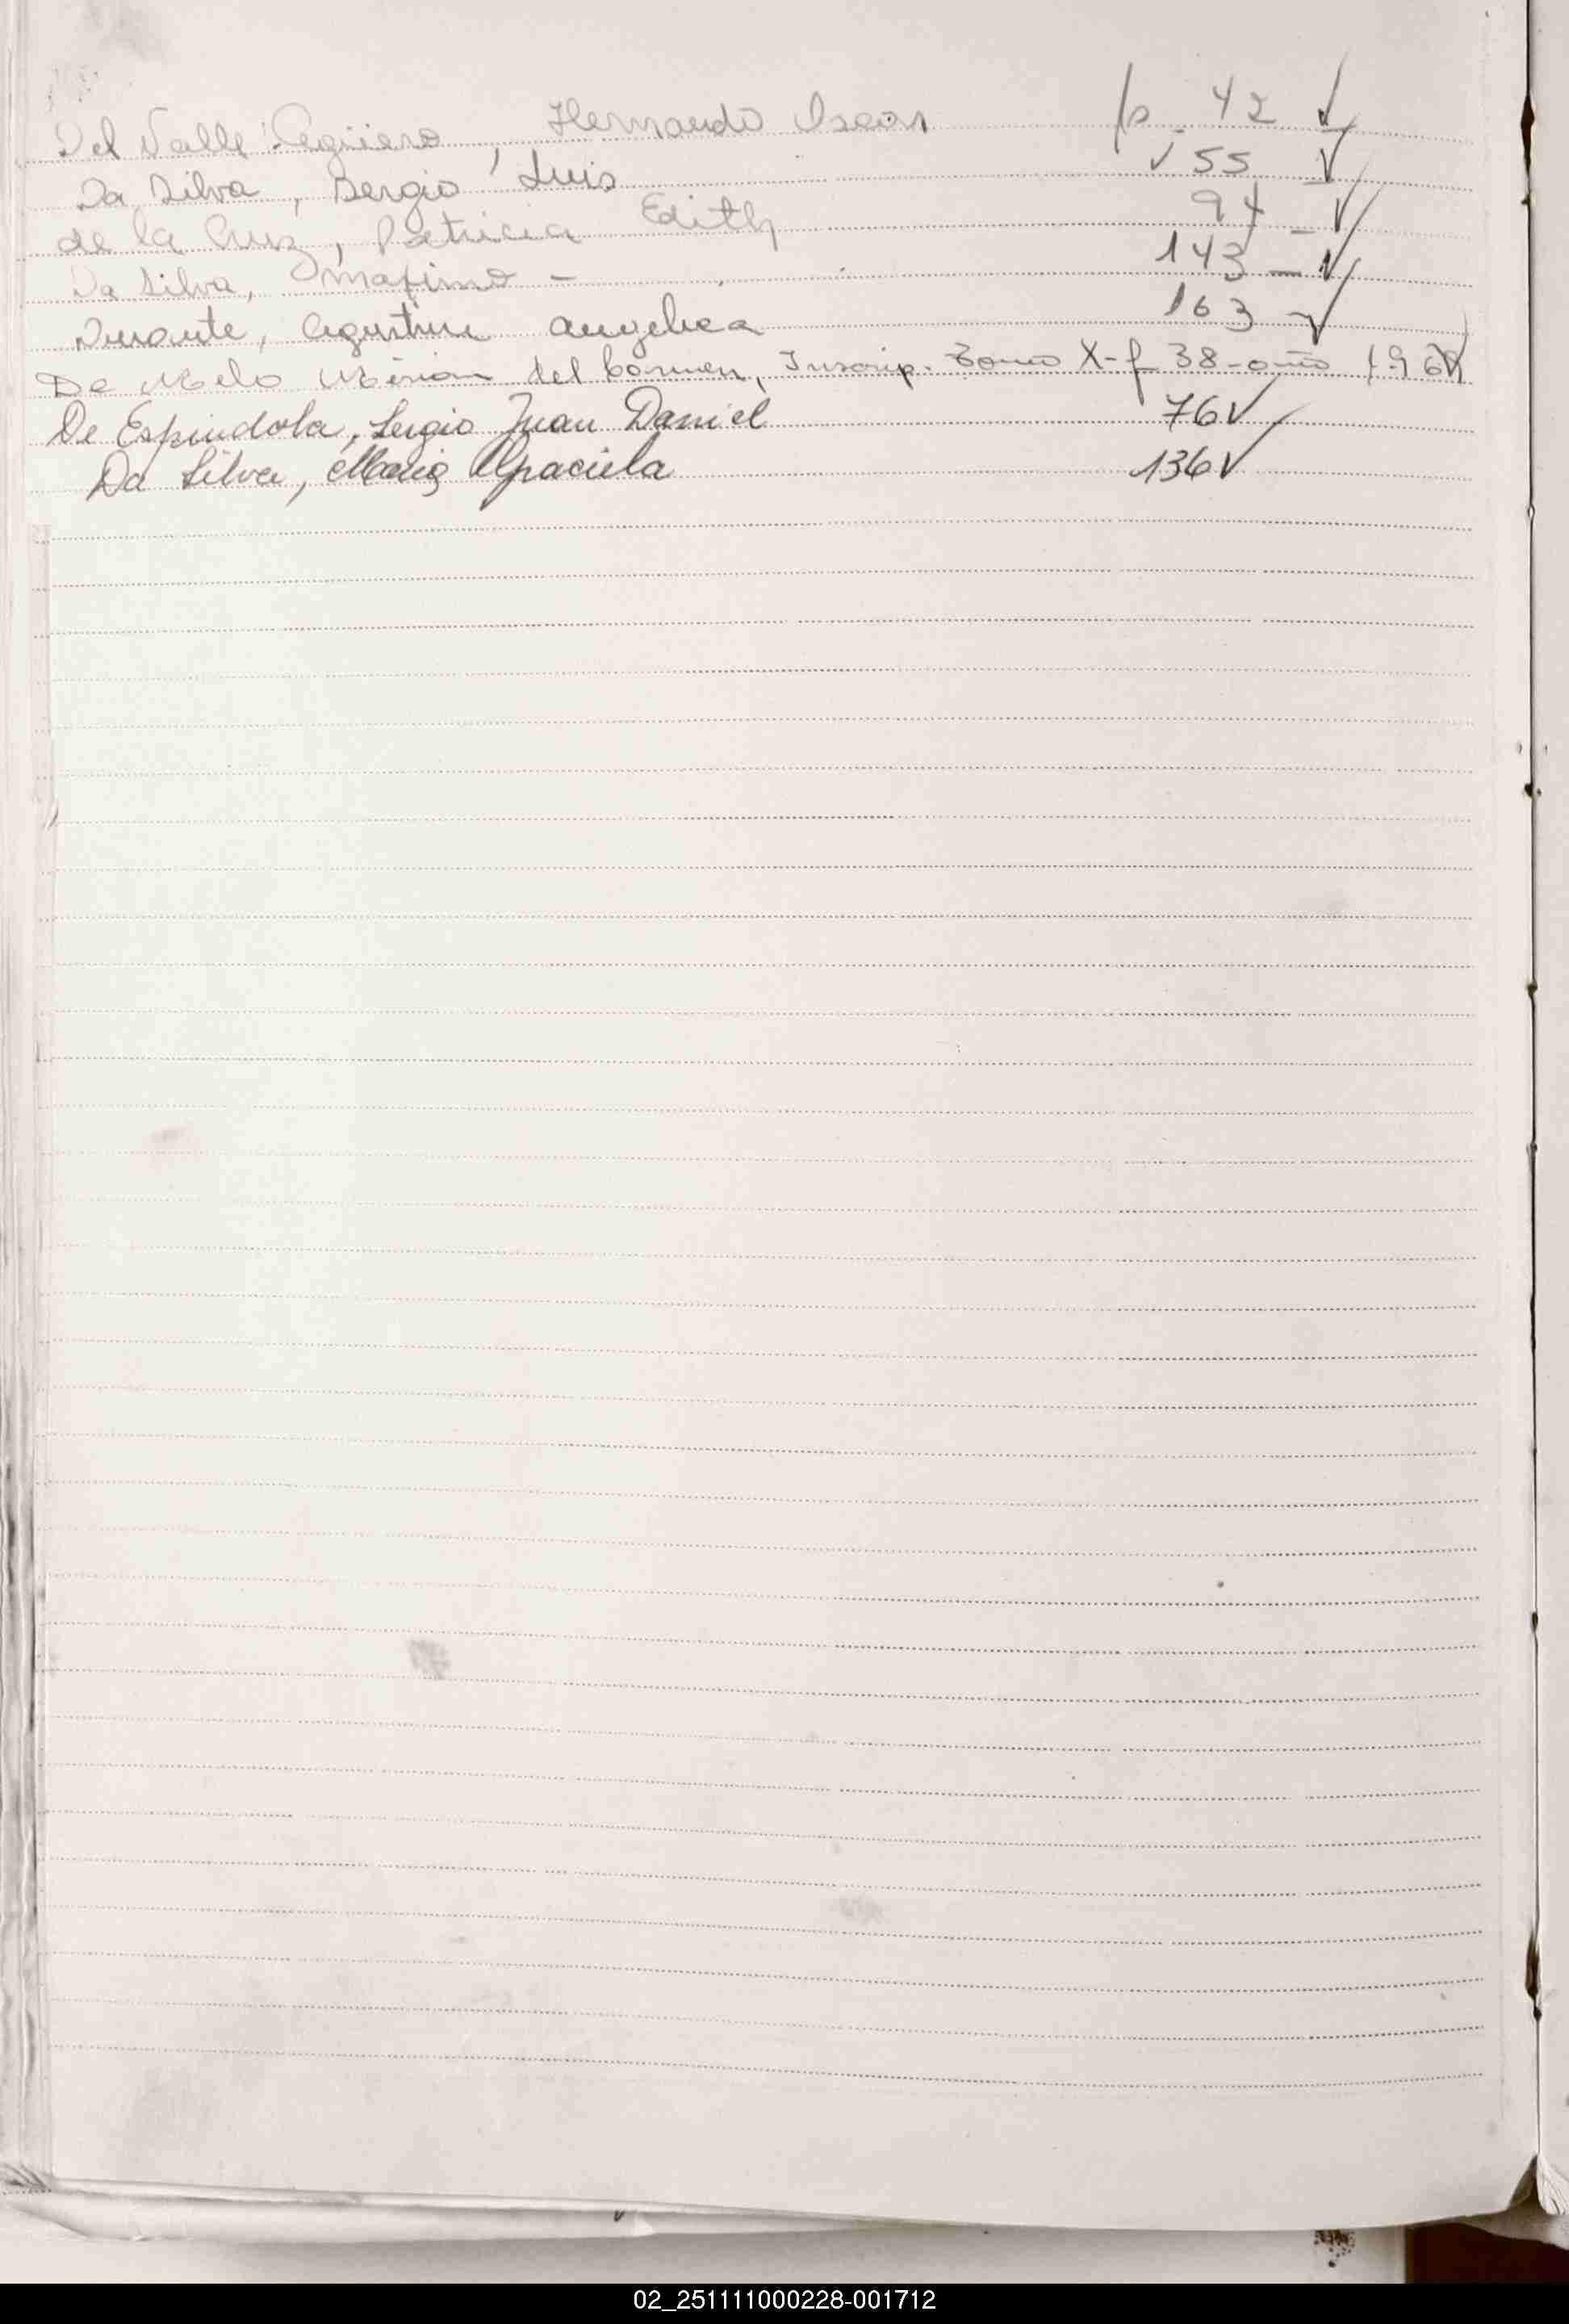 Del Valle Agüero, Hernando Oscar fs. 42 ✓
Da Silva, Sergio Luis ✓ 55 ✓
de la Cruz, Patricia Edith 94 - ✓
Da Silva, Maximo - 143 - ✓
Durante, Agustina Angelica 163 ✓
De Melo Mirian del Carmen, Inscrip. Tomo X-f 38-año 196
De Espindola, Sergio Juan Daniel 76 ✓
Da Silva, Maria Graciela 136 ✓
02_251111000228-001712